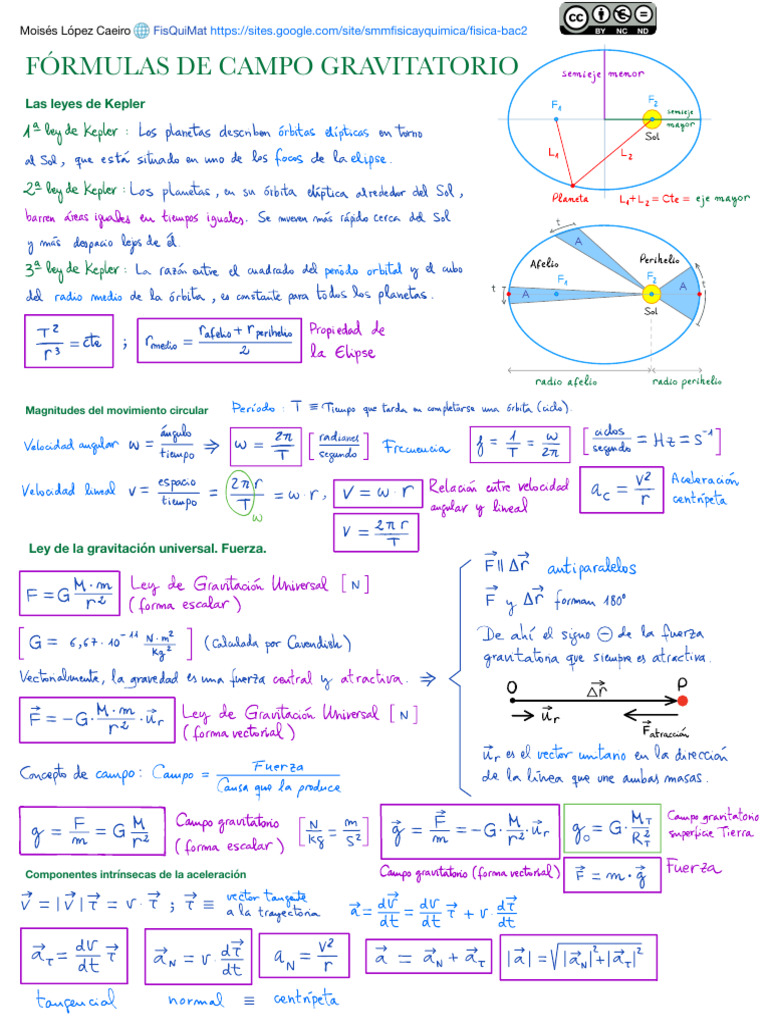 Moisés López Caeiro FisQuiMat https://sites.google.com/site/smmfisicayquimica/fisica-bac2
CC BY NC ND
FÓRMULAS DE CAMPO GRAVITATORIO
Las leyes de Kepler
1ª ley de Kepler: Los planetas describen órbitas elípticas en torno
al Sol, que está situado en uno de los focos de la elipse.
2ª ley de Kepler: Los planetas, en su órbita elíptica alrededor del Sol,
barren áreas iguales en tiempos iguales. Se mueven más rápido cerca del Sol
y más despacio lejos de él.
3ª ley de Kepler: La razón entre el cuadrado del periodo orbital y el cubo
del radio medio de la órbita, es constante para todos los planetas.
T²/r³ = cte ; r medio = (r afelio + r perihelio)/2 Propiedad de
la Elipse
semieje menor
F₁ F₂ semieje
mayor
Sol
L₁ L₂
Planeta L₁+L₂ = Cte = eje mayor
t A Afelio Perihelio
F₁ F₂ A t
t A Sol
radio afelio radio perihelio
Magnitudes del movimiento circular Período: T ≡ Tiempo que tarda en completarse una órbita (ciclo).
Velocidad angular w = ángulo/tiempo ⇒ w = 2π/T [radianes/segundo] Frecuencia f = 1/T = w/2π [ciclos/segundo = Hz = s⁻¹]
Velocidad lineal v = espacio/tiempo = 2πr/T = w·r, v = w·r Relación entre velocidad
angular y lineal
w
v = 2πr/T
a_c = v²/r Aceleración
centrípeta
Ley de la gravitación universal. Fuerza.
F = G M·m/r² Ley de Gravitación Universal [N]
(forma escalar)
[G = 6,67·10⁻¹¹ N·m²/kg²] (Calculada por Cavendish)
Vectorialmente, la gravedad es una fuerza central y atractiva. ⇒
F⃗ = −G·M·m/r²·u⃗r Ley de Gravitación Universal [N]
(forma vectorial)
F⃗ ∥ Δr⃗ antiparalelos
F⃗ y Δr⃗ forman 180º
De ahí el signo ⊖ de la fuerza
gravitatoria que siempre es atractiva.
O Δr⃗ P
u⃗r F⃗ atracción
u⃗r es el vector unitario en la dirección
de la línea que une ambas masas.
Concepto de campo: Campo = Fuerza/Causa que la produce
g = F/m = G M/r² Campo gravitatorio
(forma escalar) [N/kg = m/s²]
g⃗ = F⃗/m = −G·M/r²·u⃗r
Campo gravitatorio (forma vectorial)
g₀ = G·M_T/R_T² Campo gravitatorio
superficie Tierra
F⃗ = m·g⃗ Fuerza
Componentes intrínsecas de la aceleración
v⃗ = |v⃗| τ⃗ = v·τ⃗ ; τ⃗ ≡ vector tangente
a la trayectoria a⃗ = dv⃗/dt = dv/dt τ⃗ + v·dτ⃗/dt
a⃗_T = dv/dt τ⃗ a⃗_N = v·dτ⃗/dt a_N = v²/r a⃗ = a⃗_N + a⃗_T |a⃗| = √(|a⃗_N|²+|a⃗_T|²)
tangencial normal ≡ centrípeta